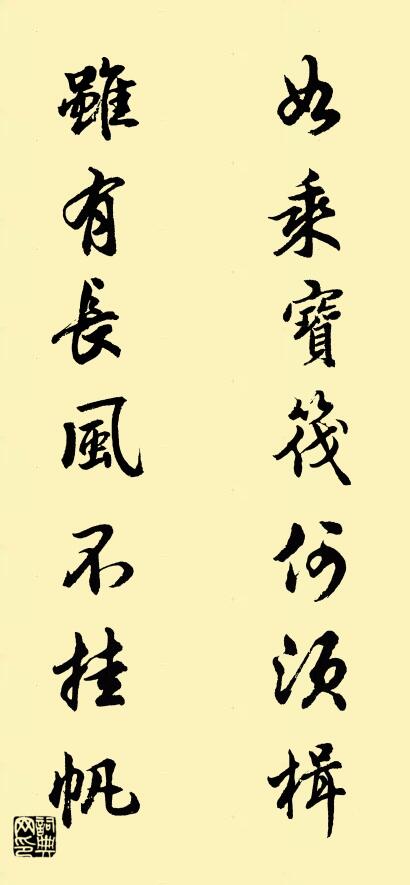 如乘寶筏何須楫
雖有長風不挂帆
詞典網印